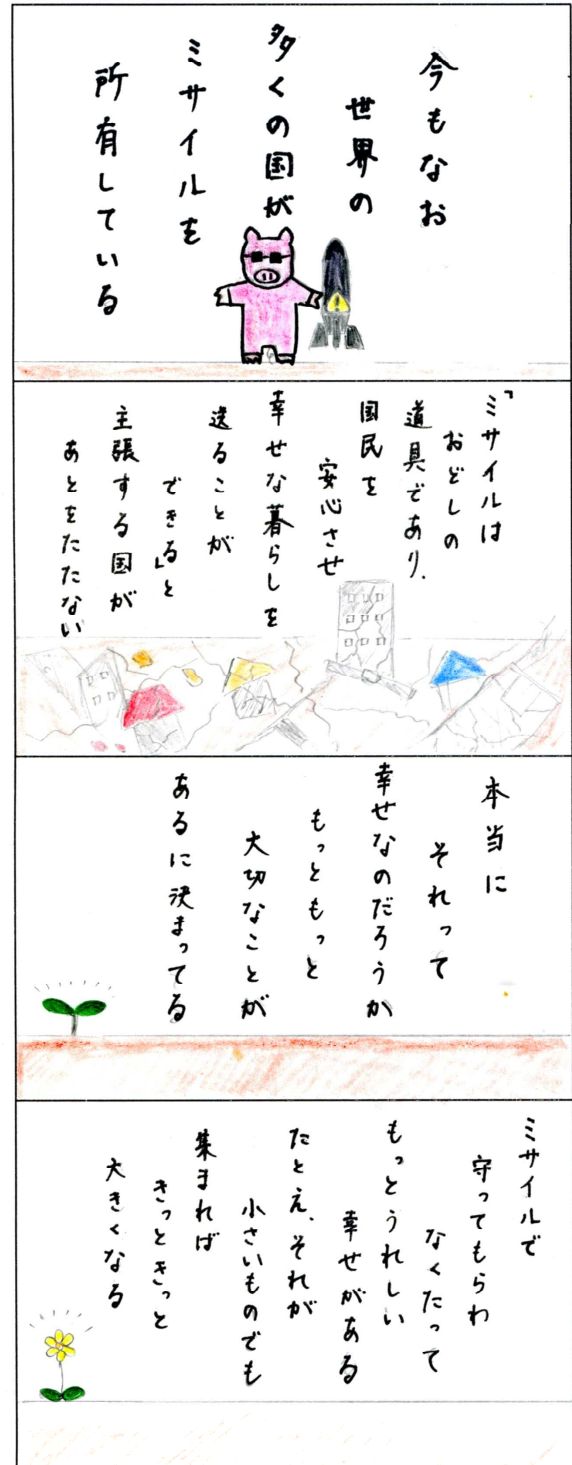 今もなお
世界の
多くの国が
ミサイルを
所有している
「ミサイルは
おどしの
道具であり、
国民を
安心させ
幸せな暮らしを
送ることが
できる」と
主張する国が
あとをたたない
本当に
それって
幸せなのだろうか
もっともっと
大切なことが
あるに決まってる
ミサイルで
守ってもらわ
なくたって
もっとうれしい
幸せがある
たとえ、それが
小さいものでも
集まれば
きっときっと
大きくなる